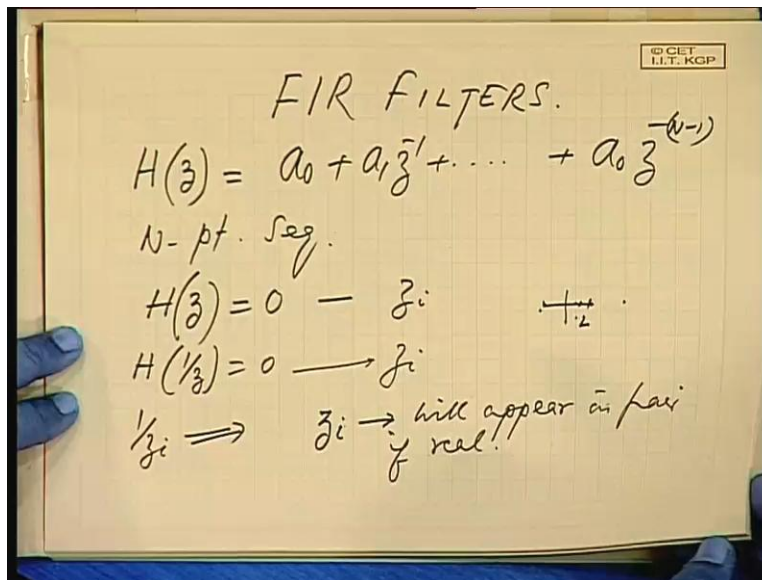 © CET
I.I.T. KGP
FIR FILTERS.
H(z) = a₀ + a₁z⁻¹ + .... + a₀ z^-(N-1)
N-pt. Seq.
H(z) = 0 — zi
H(1/z) = 0 → zi
1/zi ⇒ zi → will appear in pair
if real.